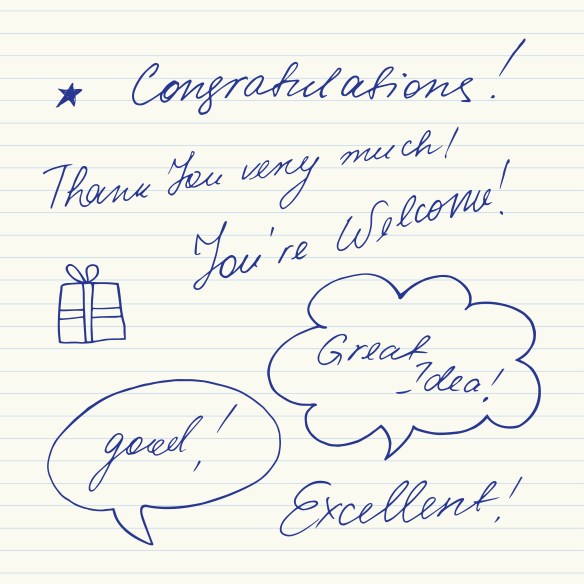 Congratulations!
Thank You very much!
You're Welcome!
Great
Idea!
good!
Excellent!